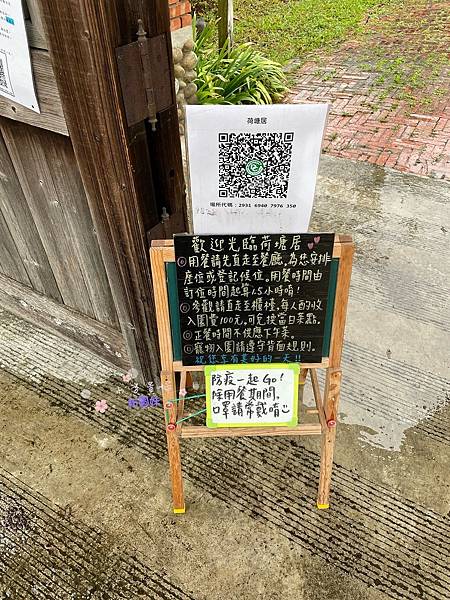 荷塘居
場所代碼：2931 6940 7976 350
歡迎光臨荷塘居
用餐請先直走至餐廳，為您安排
座位或登記候位。用餐時間由
訂位時間起算1.5小時唷！
參觀請直走至櫃檯，每人酌收
入園費100元，可兌換當日茶點。
正餐時間不供應下午茶。
寵物入園請遵守背面規則。
祝您享有美好的一天!!
防疫一起Go！
除用餐期間，
口罩請常戴唷